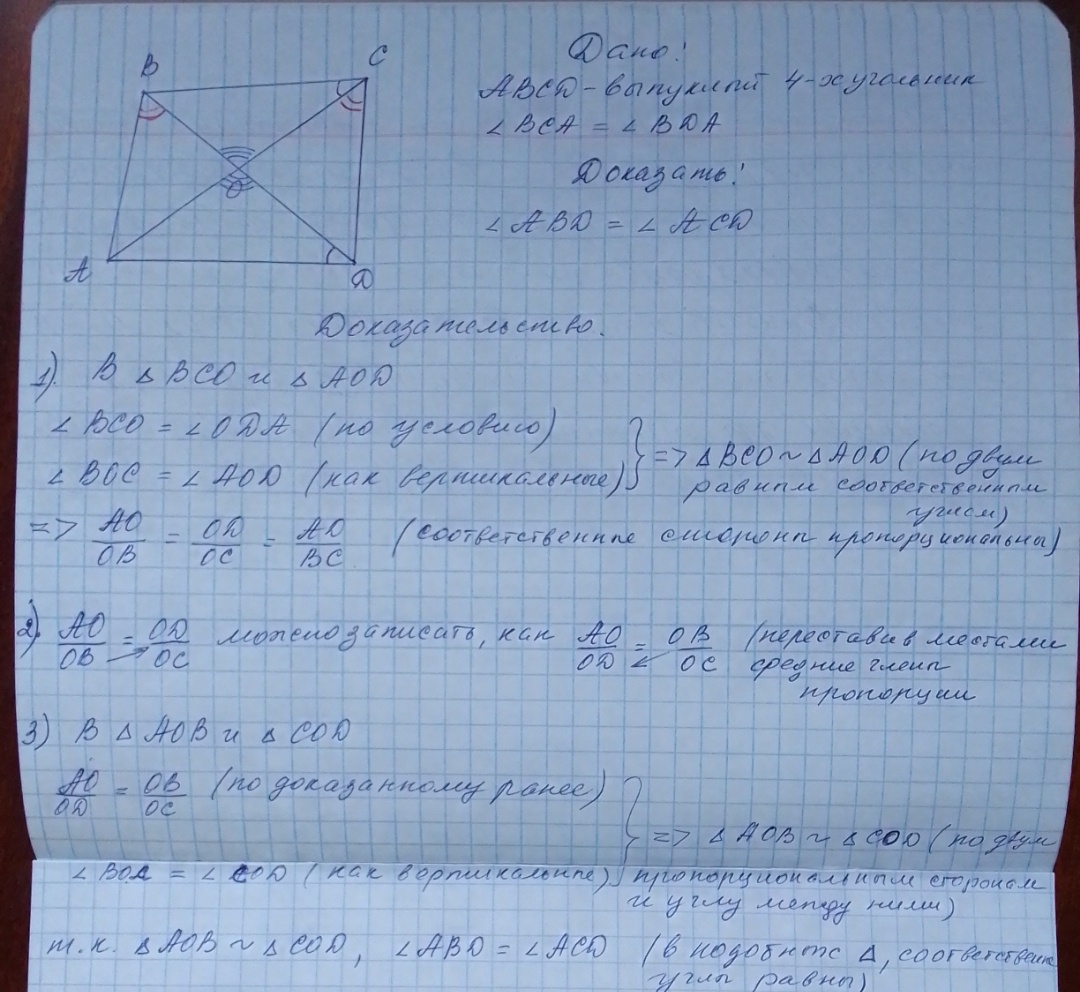 B
C
O
A
D
Дано:
ABCD - выпуклый 4-хугольник
∠BCA = ∠BDA
Доказать:
∠ABD = ∠ACD
Доказательство.
1). В △BCO и △AOD
∠BCO = ∠ODA (по условию)
∠BOC = ∠AOD (как вертикальные)
} => △BCO ~ △AOD (по двум
равным соответственным
углам)
=> AO/OB = OD/OC = AD/BC (соответственные стороны пропорциональны)
2). AO/OB = OD/OC можно записать, как AO/OD = OB/OC (переставив местами
средние члены
пропорции
3) В △AOB и △COD
AO/OD = OB/OC (по доказанному ранее)
} => △AOB ~ △COD (по двум
∠BOA = ∠COD (как вертикальные) пропорциональным сторонам
и углу между ними)
т.к. △AOB ~ △COD, ∠ABD = ∠ACD (в подобных △, соответствен
углы равны)